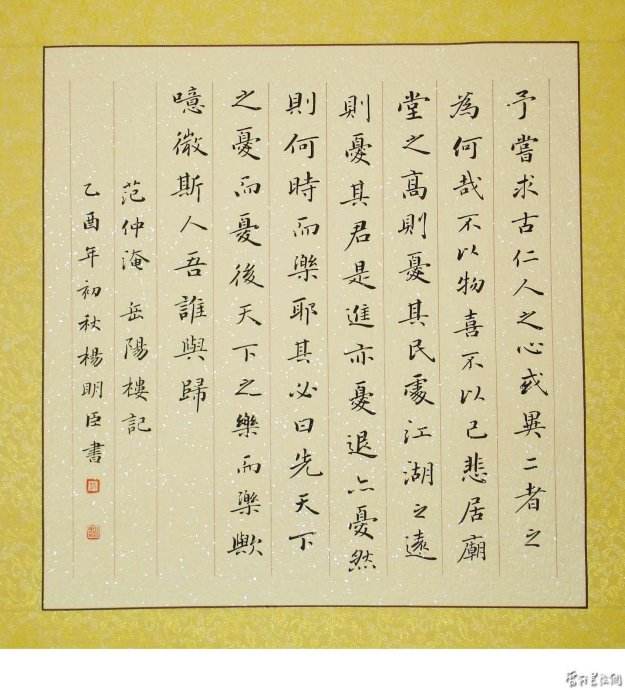 予嘗求古仁人之心或異二者之
為何哉不以物喜不以己悲居廟
堂之高則憂其民處江湖之遠
則憂其君是進亦憂退亦憂然
則何時而樂耶其必曰先天下
之憂而憂後天下之樂而樂歟
噫微斯人吾誰與歸
范仲淹 岳陽樓記
乙酉年初秋楊明臣書